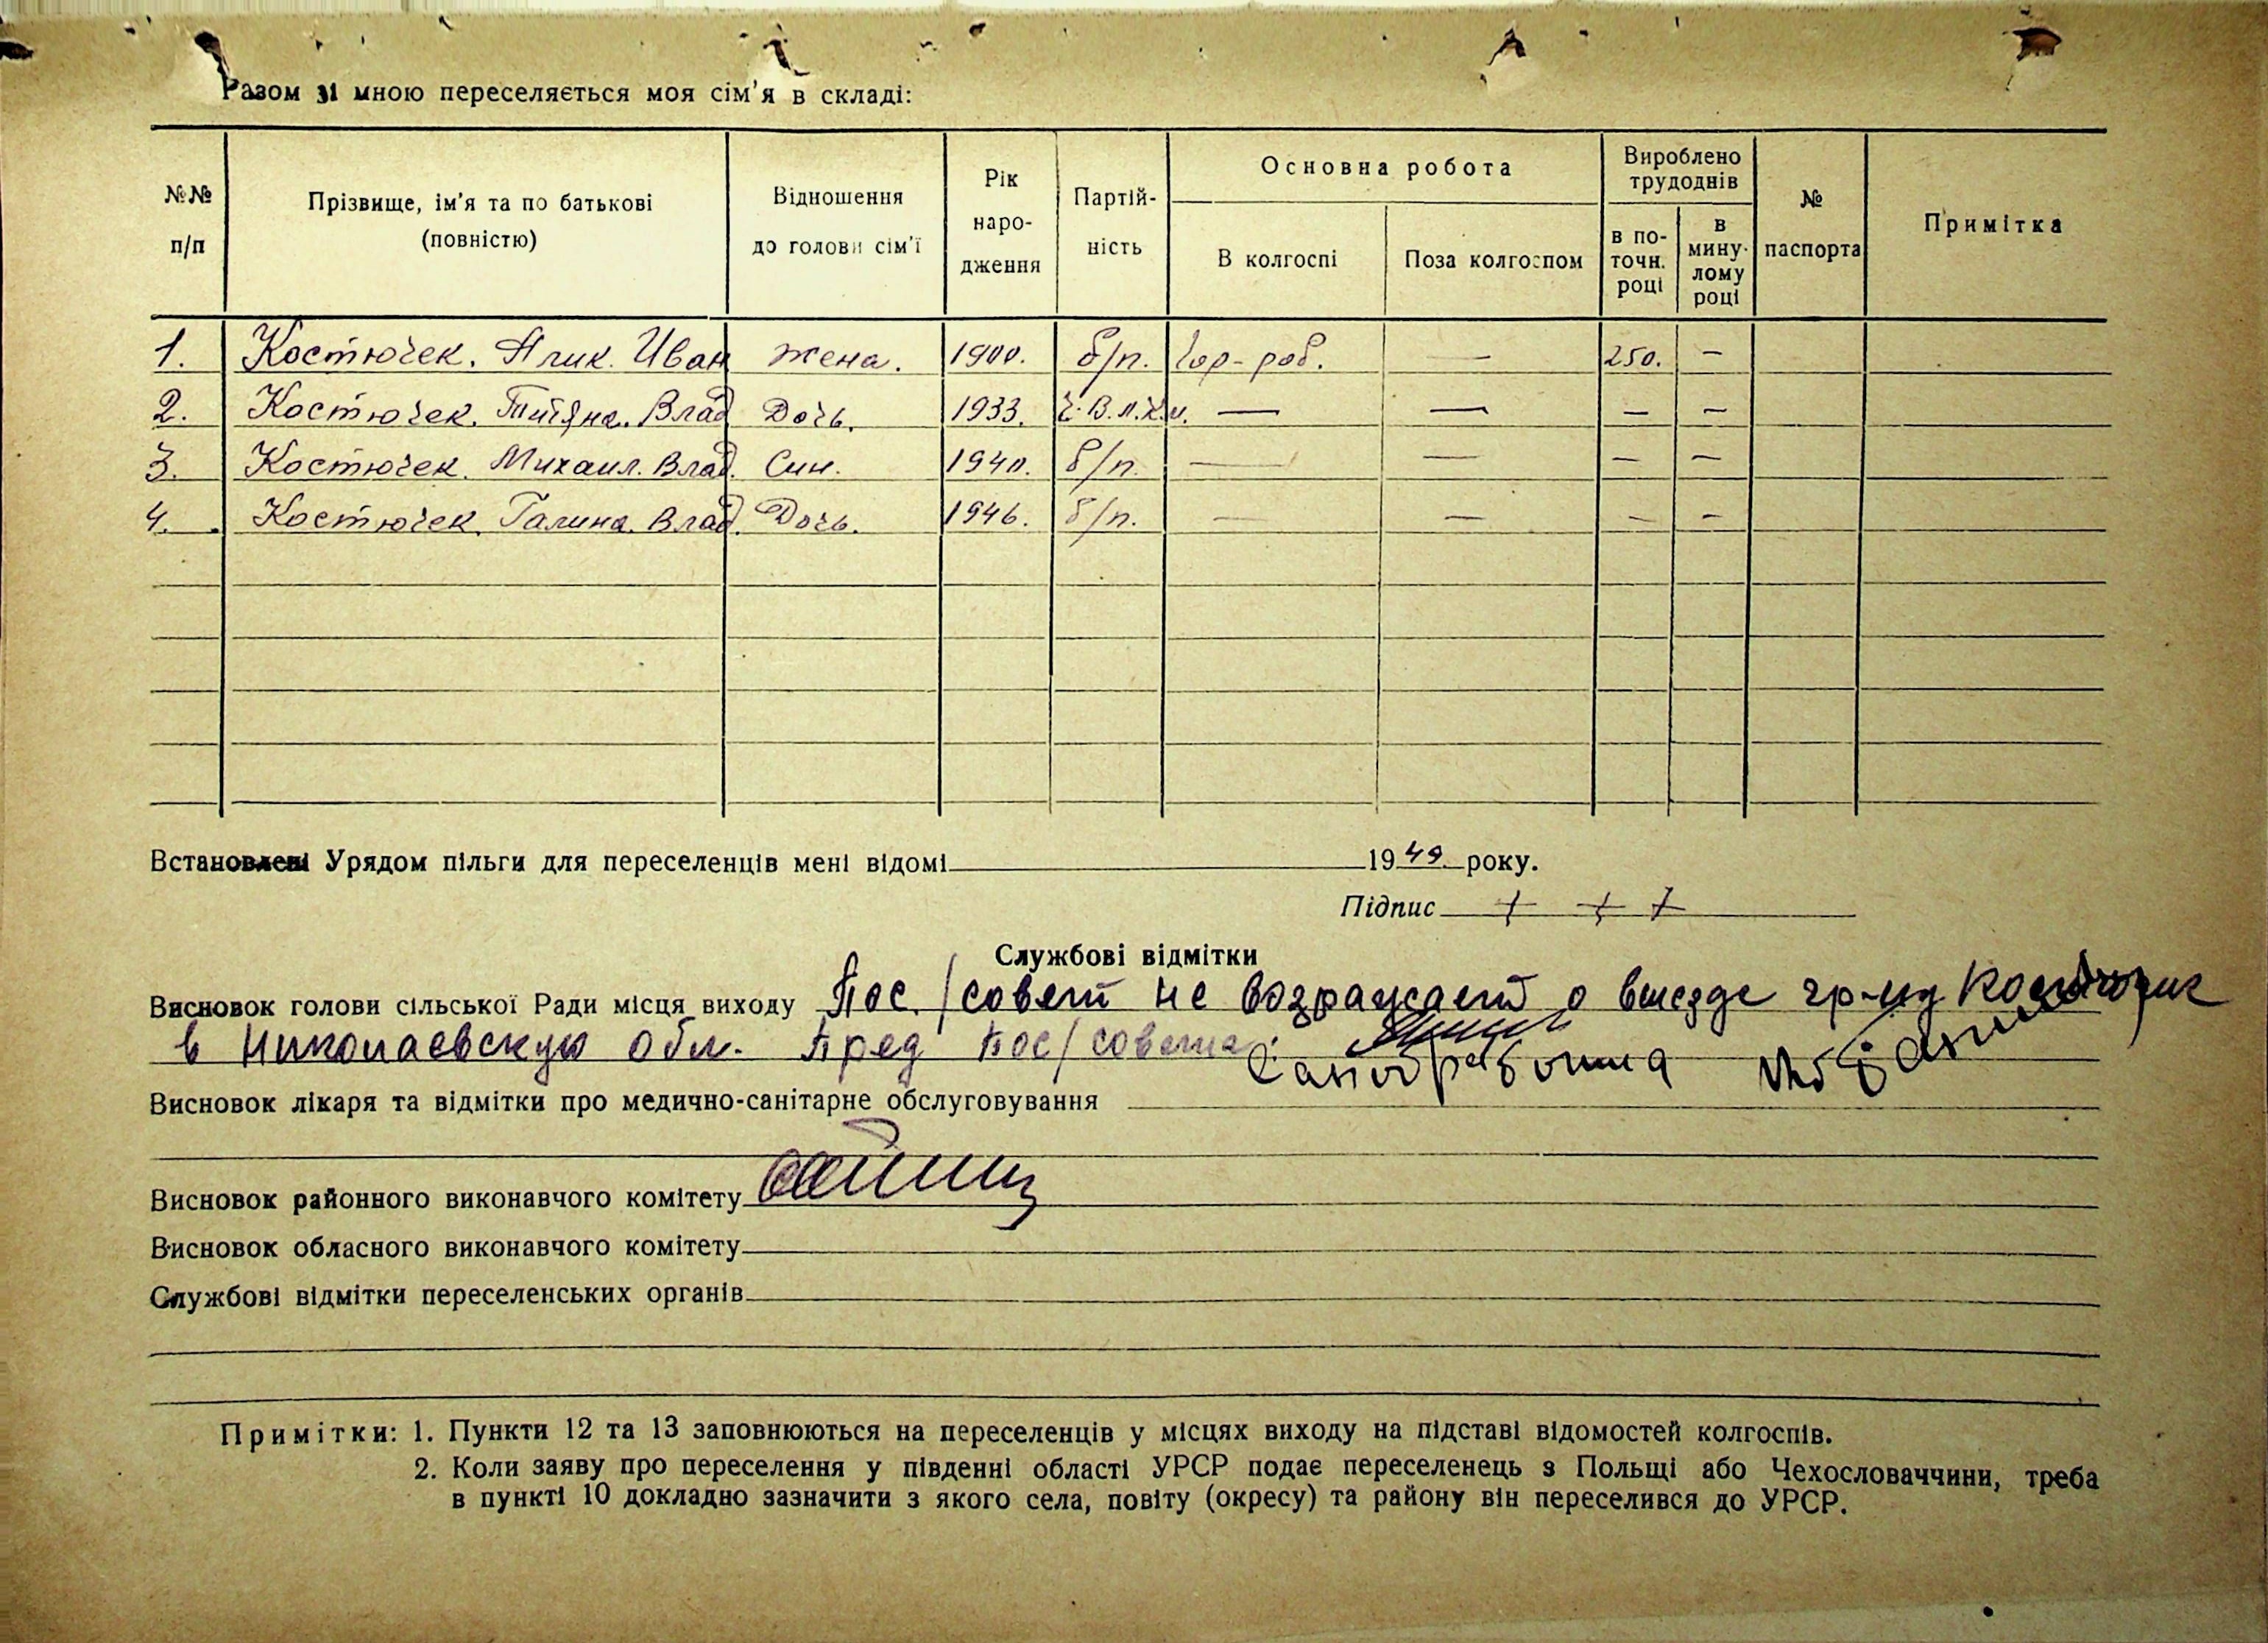 Разом зі мною переселяється моя сім'я в складі:
№№ п/п
Прізвище, ім'я та по батькові (повністю)
Відношення до голови сім'ї
Рік наро-дження
Партій-ність
Основна робота
В колгоспі
Поза колгоспом
Вироблено трудоднів
в по-точн. році
в мину-лому році
№ паспорта
Примітка
1. Костючек. Иван жена. 1900. б/п. — 250. —
2. Костючек. Влад Дочь. 1933. — — — —
3. Костючек. Михаил. Влад. Син. 1940. б/п. — — — —
4. Костючек. Галина. Влад. Дочь. 1946. б/п. — — — —
Встановлені Урядом пільги для переселенців мені відомі 1949 року.
Підпис + + +
Службові відмітки
Висновок голови сільської Ради місця виходу Пос/совет не возражает о выезде гр-на
в Николаевскую обл. Пред Пос/совета:
Висновок лікаря та відмітки про медично-санітарне обслуговування
Висновок районного виконавчого комітету
Висновок обласного виконавчого комітету
Службові відмітки переселенських органів
Примітки: 1. Пункти 12 та 13 заповнюються на переселенців у місцях виходу на підставі відомостей колгоспів.
2. Коли заяву про переселення у південні області УРСР подає переселенець з Польщі або Чехословаччини, треба
в пункті 10 докладно зазначити з якого села, повіту (окресу) та району він переселився до УРСР.